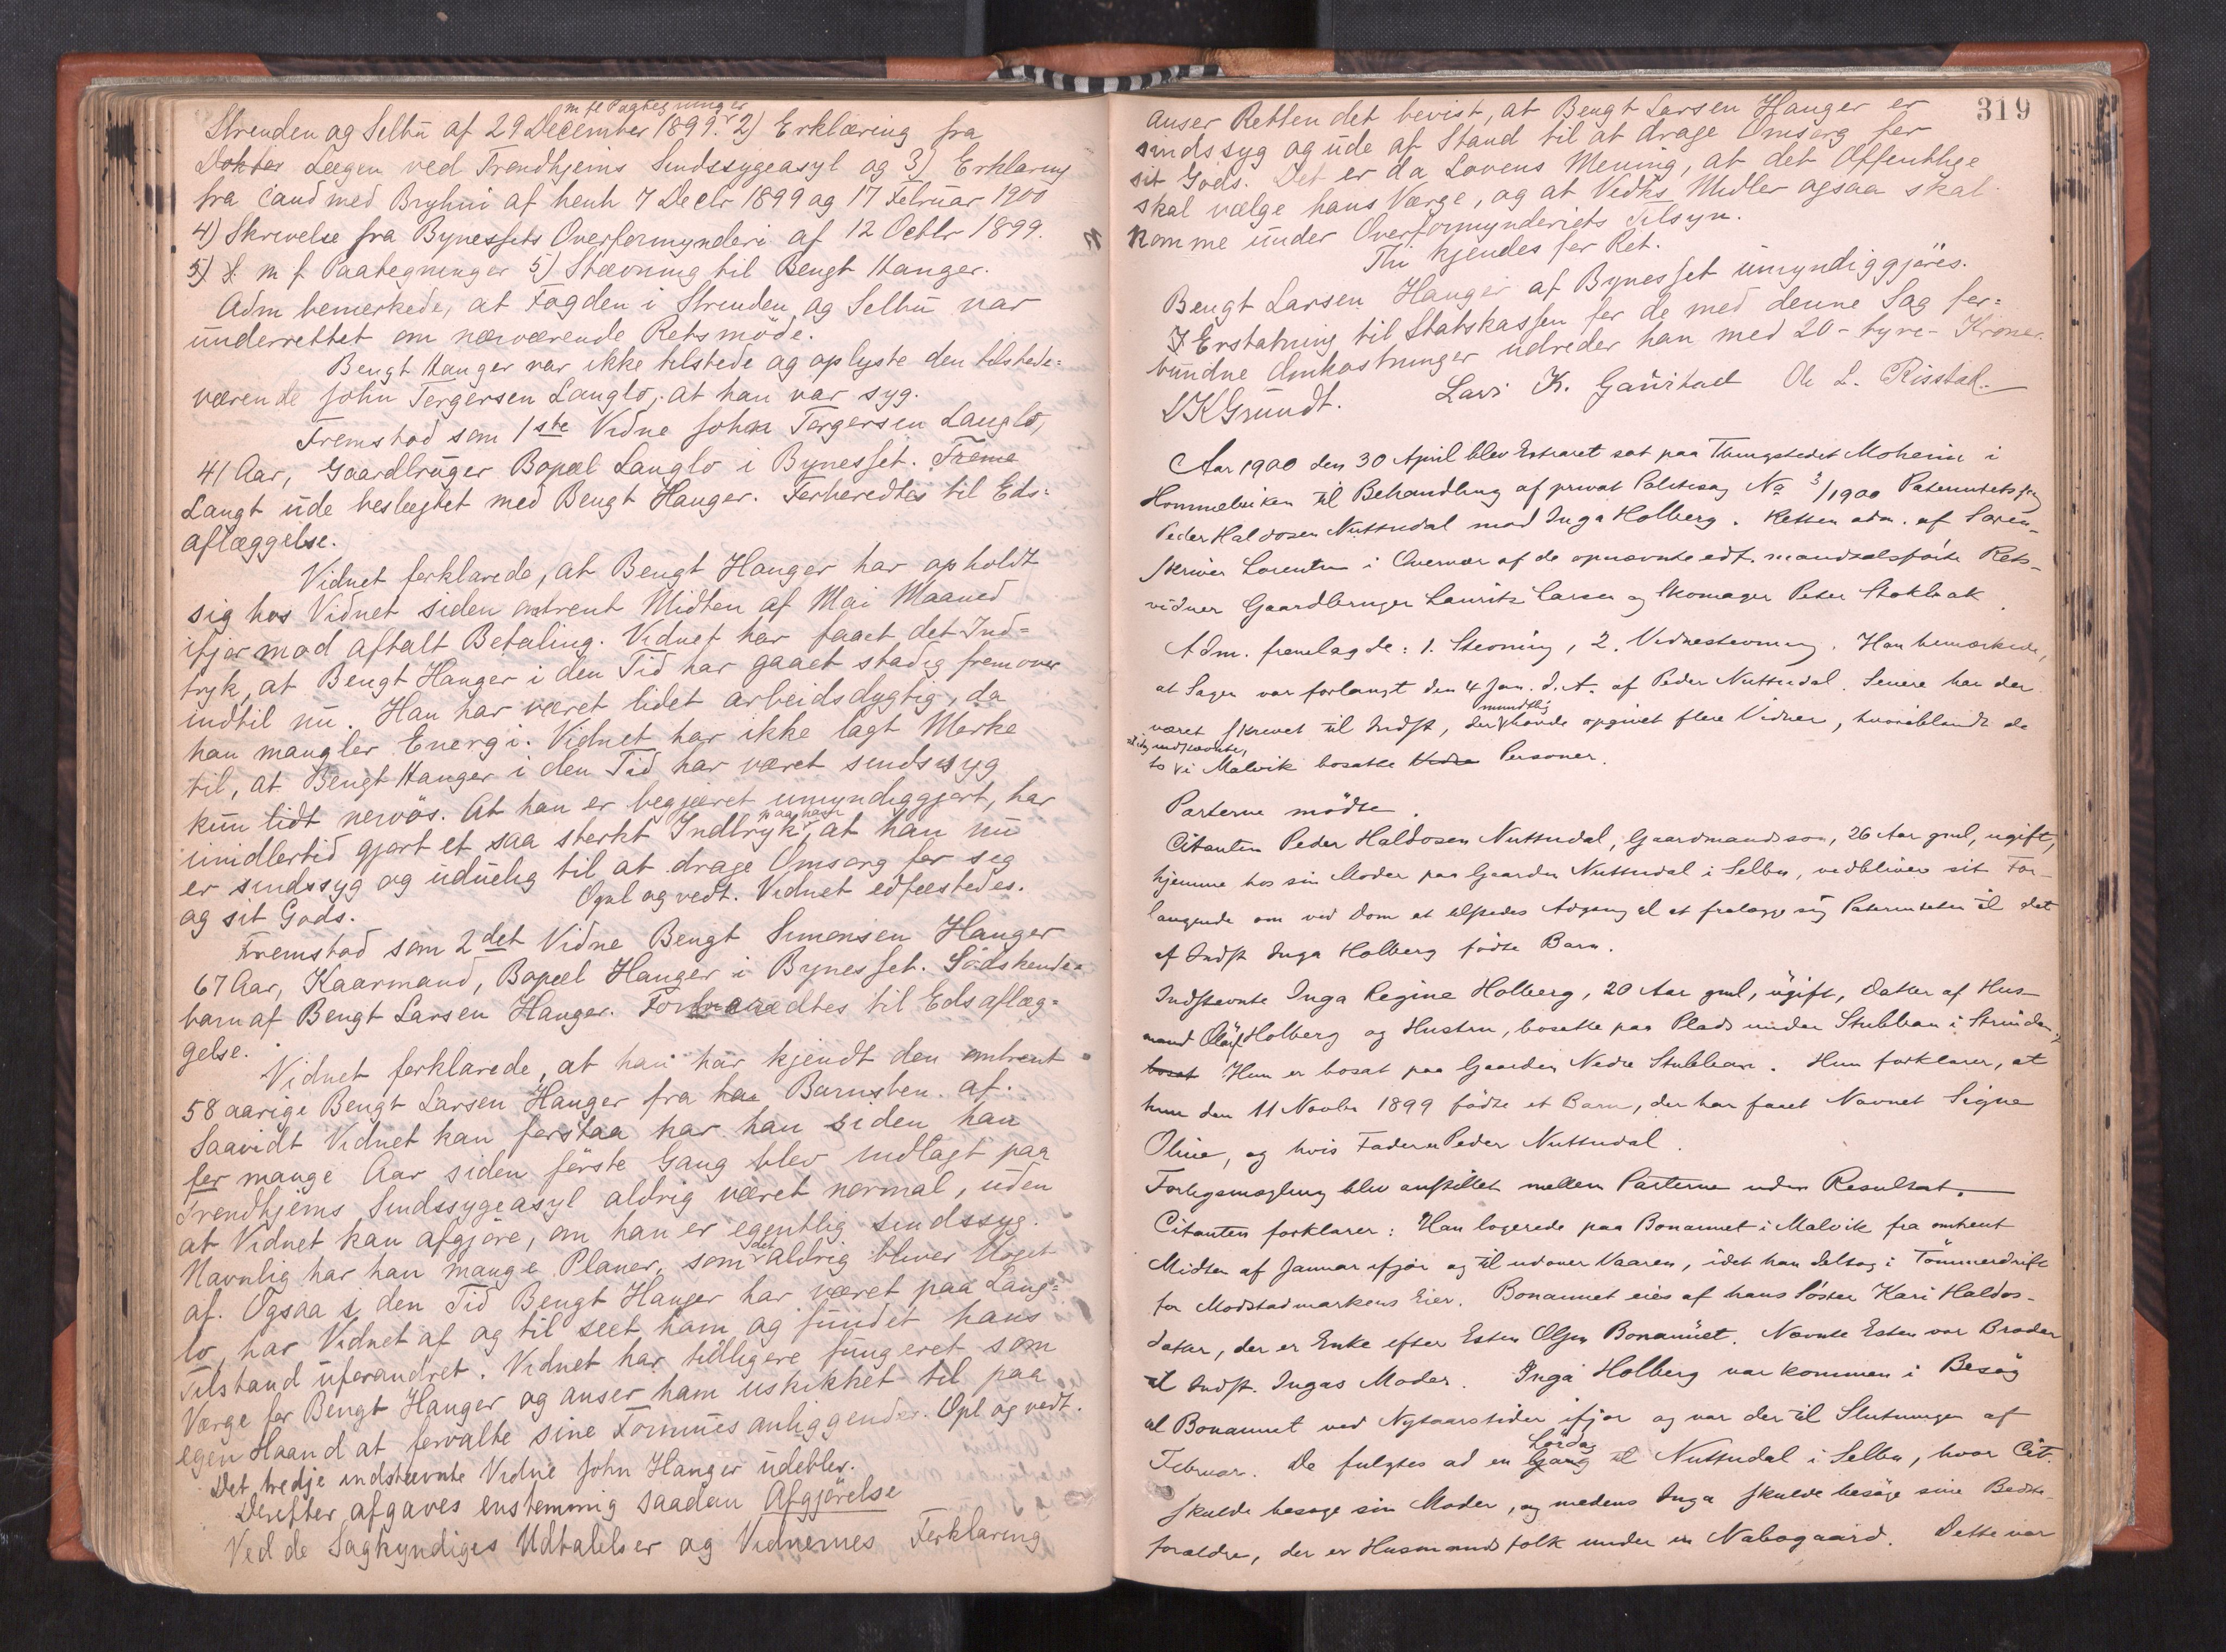 m fl Paategninger
Strenden og Selbu af 29 December 1899. 2) Erklæring fra
Dokter Lægen ved Trondhjems Sindssygeasyl og 3) Erklæring
fra cand med Bryhni af henh 7 Decbr 1899 og 17 Februar 1900
4) Skrivelse fra Bynessets Overformynderi af 12 Octbr 1899.
5) f. m f. Paategninger 5) Stævning til Bengt Hanger.
Adm bemerkede, at Fogden i Strinden og Selbu var
underrettet om nærværende Retsmöde.
Bengt Hanger var ikke tilstede og oplyste den tilstede=
værende John Tergersen Langlo, at han var syg.
Fremstod som 1ste Vidne John Torgersen Langlo,
41 Aar, Gaardbruger Bopæl Langlo i Bynesset. Freme
Langt ude beslegtet med Bengt Hanger. Forberedtes til Eds=
aflæggelse.
Vidnet forklarede, at Bengt Hanger har opholdt
sig hos Vidnet siden omtrent Midten af Mai Maaned
ifjor mod aftalt Betaling. Vidnet har faaet det Ind=
tryk, at Bengt Hanger i den Tid har gaaet stadig fremover
indtil nu. Han har været lidet arbeidsdygtig, da
han mangler Energi. Vidnet har ikke lagt Merke
til, at Bengt Hanger i den Tid har været sindssyg
kun lidt nervös. At han er begjæret umyndiggjort, har
imidlertid gjort et saa sterkt Indtryk paa ham, at han nu
er sindssyg og uduelig til at drage Omsorg for seg
og sit Gods. Opl og vedt. Vidnet edfæstedes.
Fremstod som 2det Vidne Bengt Simonsen Hanger
67 Aar, Kaarmand, Bopæl Hanger i Bynesset. Södskende=
barn af Bengt Larsen Hanger. Forberedtes til Edsaflæg=
gelse.
Vidnet forklarede, at han har kjendt den omtrent
58 aarige Bengt Larsen Hanger fra ha Barnsben af.
Saavidt Vidnet kan forstaa har han siden han
for mange Aar siden förste Gang blev indlagt paa
Trondhjems Sindssygeasyl aldrig været normal, uden
at Vidnet kan afgjöre, om han er egentlig sindssyg.
Navnlig har han mange Planer, som det aldrig bliver Noget
af. Ogsaa i den Tid Bengt Hanger har været paa Lang=
lo, har Vidnet af og til seet ham og fundet hans
Tilstand uforandret. Vidnet har tidligere fungeret som
Værge for Bengt Hanger og anser ham uskikket til paa
egen Haand at forvalte sine Formuesanliggender. Opl og vedt.
Det tredje indstævnte Vidne John Hanger udeblev.
Derefter afgaves enstemmig saadan Afgjörelse
Ved de Sagkyndiges Udtalelser og Vidnernes Forklaring
319
anser Retten det bevist, at Bengt Larsen Hanger er
sindssyg og ude af Stand til at drage Omsorg for
sit Gods. Det er da Lovens Mening, at det Offentlige
skal vælge hans Værge, og at Vedks Midler ogsaa skal
komme under Overformynderiets Tilsyn.
Thi kjendes for Ret.
Bengt Larsen Hanger af Bynesset umyndiggjöres.
I Erstatning til Statskassen for de med denne Sag for=
bundne Omkostninger udreder han med 20 - tyve - Kroner.
LKGrundt. Lars K. Gaustad Ole L. Risstad
Aar 1900 den 30 April blev Extraret sat paa Thingstedet Moheim i
Hommelviken til Behandling af privat Politisag No 3/1900 Paternitetssag
Peder Haldosen Nuttudal mod Inga Holberg. Retten adm. af Soren-
skriver Lorentzen i Overvær af de opnævnte edf. mandtalsförte Rets-
vidner Gaardbruger Laurits Larsen og Skomager Peter Stokbak
Adm. fremlagde: 1. Stevning, 2. Vidnestevning. Han bemærkede,
at Sagen var forlangt den 4 Jan. d. A. af Peder Nuttudal. Senere har der
været skrevet til Indst, der mundtlig havde opgivet flere Vidner, hvoriblandt de
to indstævnte, i Malvik bosatte Vidne Personer.
Parterne mödte.
Citanten Peder Haldosen Nuttudal, Gaardmandssön, 26 Aar gml, ugift,
hjemme hos sin Moder paa Gaarden Nuttudal i Selbu, vedbliver sit For-
langende om ved Dom at tilstedes Adgang til at fralægge sig Paterniteten til det
af Indst Inga Holberg födte Barn.
Indstevnte Inga Regine Holberg, 20 Aar gml, ugift, Datter af Hus-
mand Oluf Holberg og Hustru, bosatte paa Plads under Stubban i Strinden,
bosat Hun er bosat paa Gaarden Nedre Stubban. Hun forklarer, at
hun den 11 Novbr 1899 födte et Barn, der har faaet Navnet Signe
Oline, og hvis Fader er Peder Nuttudal.
Forligsmægling blev anstillet mellem Parterne uden Resultat.
Citanten forklarer: Han logerede paa Bonaunet i Malvik fra omtrent
Midten af Januar ifjor og til udover Vaaren, idet han deltog i Tömmerdrift
for Mostadmarkens Eier. Bonaunet eies af hans Söster Kari Haldos-
datter, der er Enke efter Esten Olsen Bonaunet. Nævnte Esten var Broder
til Indst. Ingas Moder. Inga Holberg var kommen i Besög
til Bonaunet ved Nytaarstider ifjor og var der til Slutningen af
Februar. De fulgtes ad en Gang Lördag til Nuttudal i Selbu, hvor Cit.
skulde besöge sin Moder, og medens Inga skulde besöge sine Bedste-
forældre, der er Husmandsfolk under en Nabogaard. Dette var